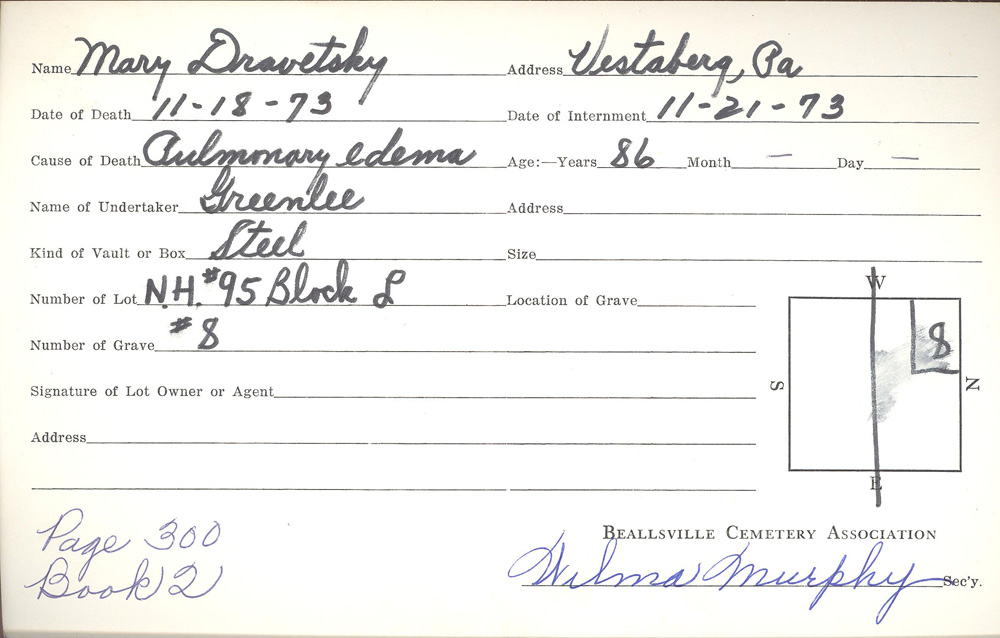 Name Mary Dravetsky Address Vestaberg, Pa
Date of Death 11-18-73 Date of Internment 11-21-73
Cause of Death Pulmonary edema Age:—Years 86 Month — Day —
Name of Undertaker Greenlee Address
Kind of Vault or Box Steel Size
Number of Lot N.H. #95 Block L Location of Grave
W
Number of Grave #8
8
Signature of Lot Owner or Agent
S N
Address
E
Page 300
Book 2
BEALLSVILLE CEMETERY ASSOCIATION
Wilma Murphy Sec'y.